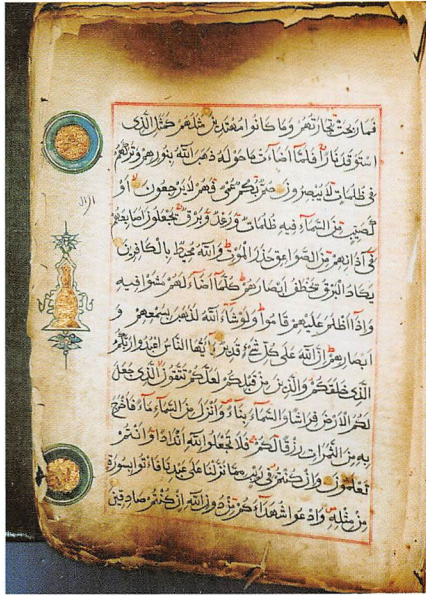 فما ربحت تجارتهم وما كانوا مهتدين مثلهم كمثل الذي
استوقد نارا فلما اضاءت ما حوله ذهب الله بنورهم وتركهم
في ظلمات لا يبصرون صم بكم عمي فهم لا يرجعون او
كصيب من السماء فيه ظلمات ورعد وبرق يجعلون اصابعهم
في آذانهم من الصواعق حذر الموت والله محيط بالكافرين
يكاد البرق يخطف ابصارهم كلما اضاء لهم مشوا فيه
واذا اظلم عليهم قاموا ولو شاء الله لذهب بسمعهم و
ابصارهم ان الله على كل شيء قدير يا ايها الناس اعبدوا ربكم
الذي خلقكم والذين من قبلكم لعلكم تتقون الذي جعل
لكم الارض فراشا والسماء بناء وانزل من السماء ماء فاخرج
به من الثمرات رزقا لكم فلا تجعلوا لله اندادا وانتم
تعلمون وان كنتم في ريب مما نزلنا على عبدنا فاتوا بسورة
من مثله وادعوا شهداءكم من دون الله ان كنتم صادقين